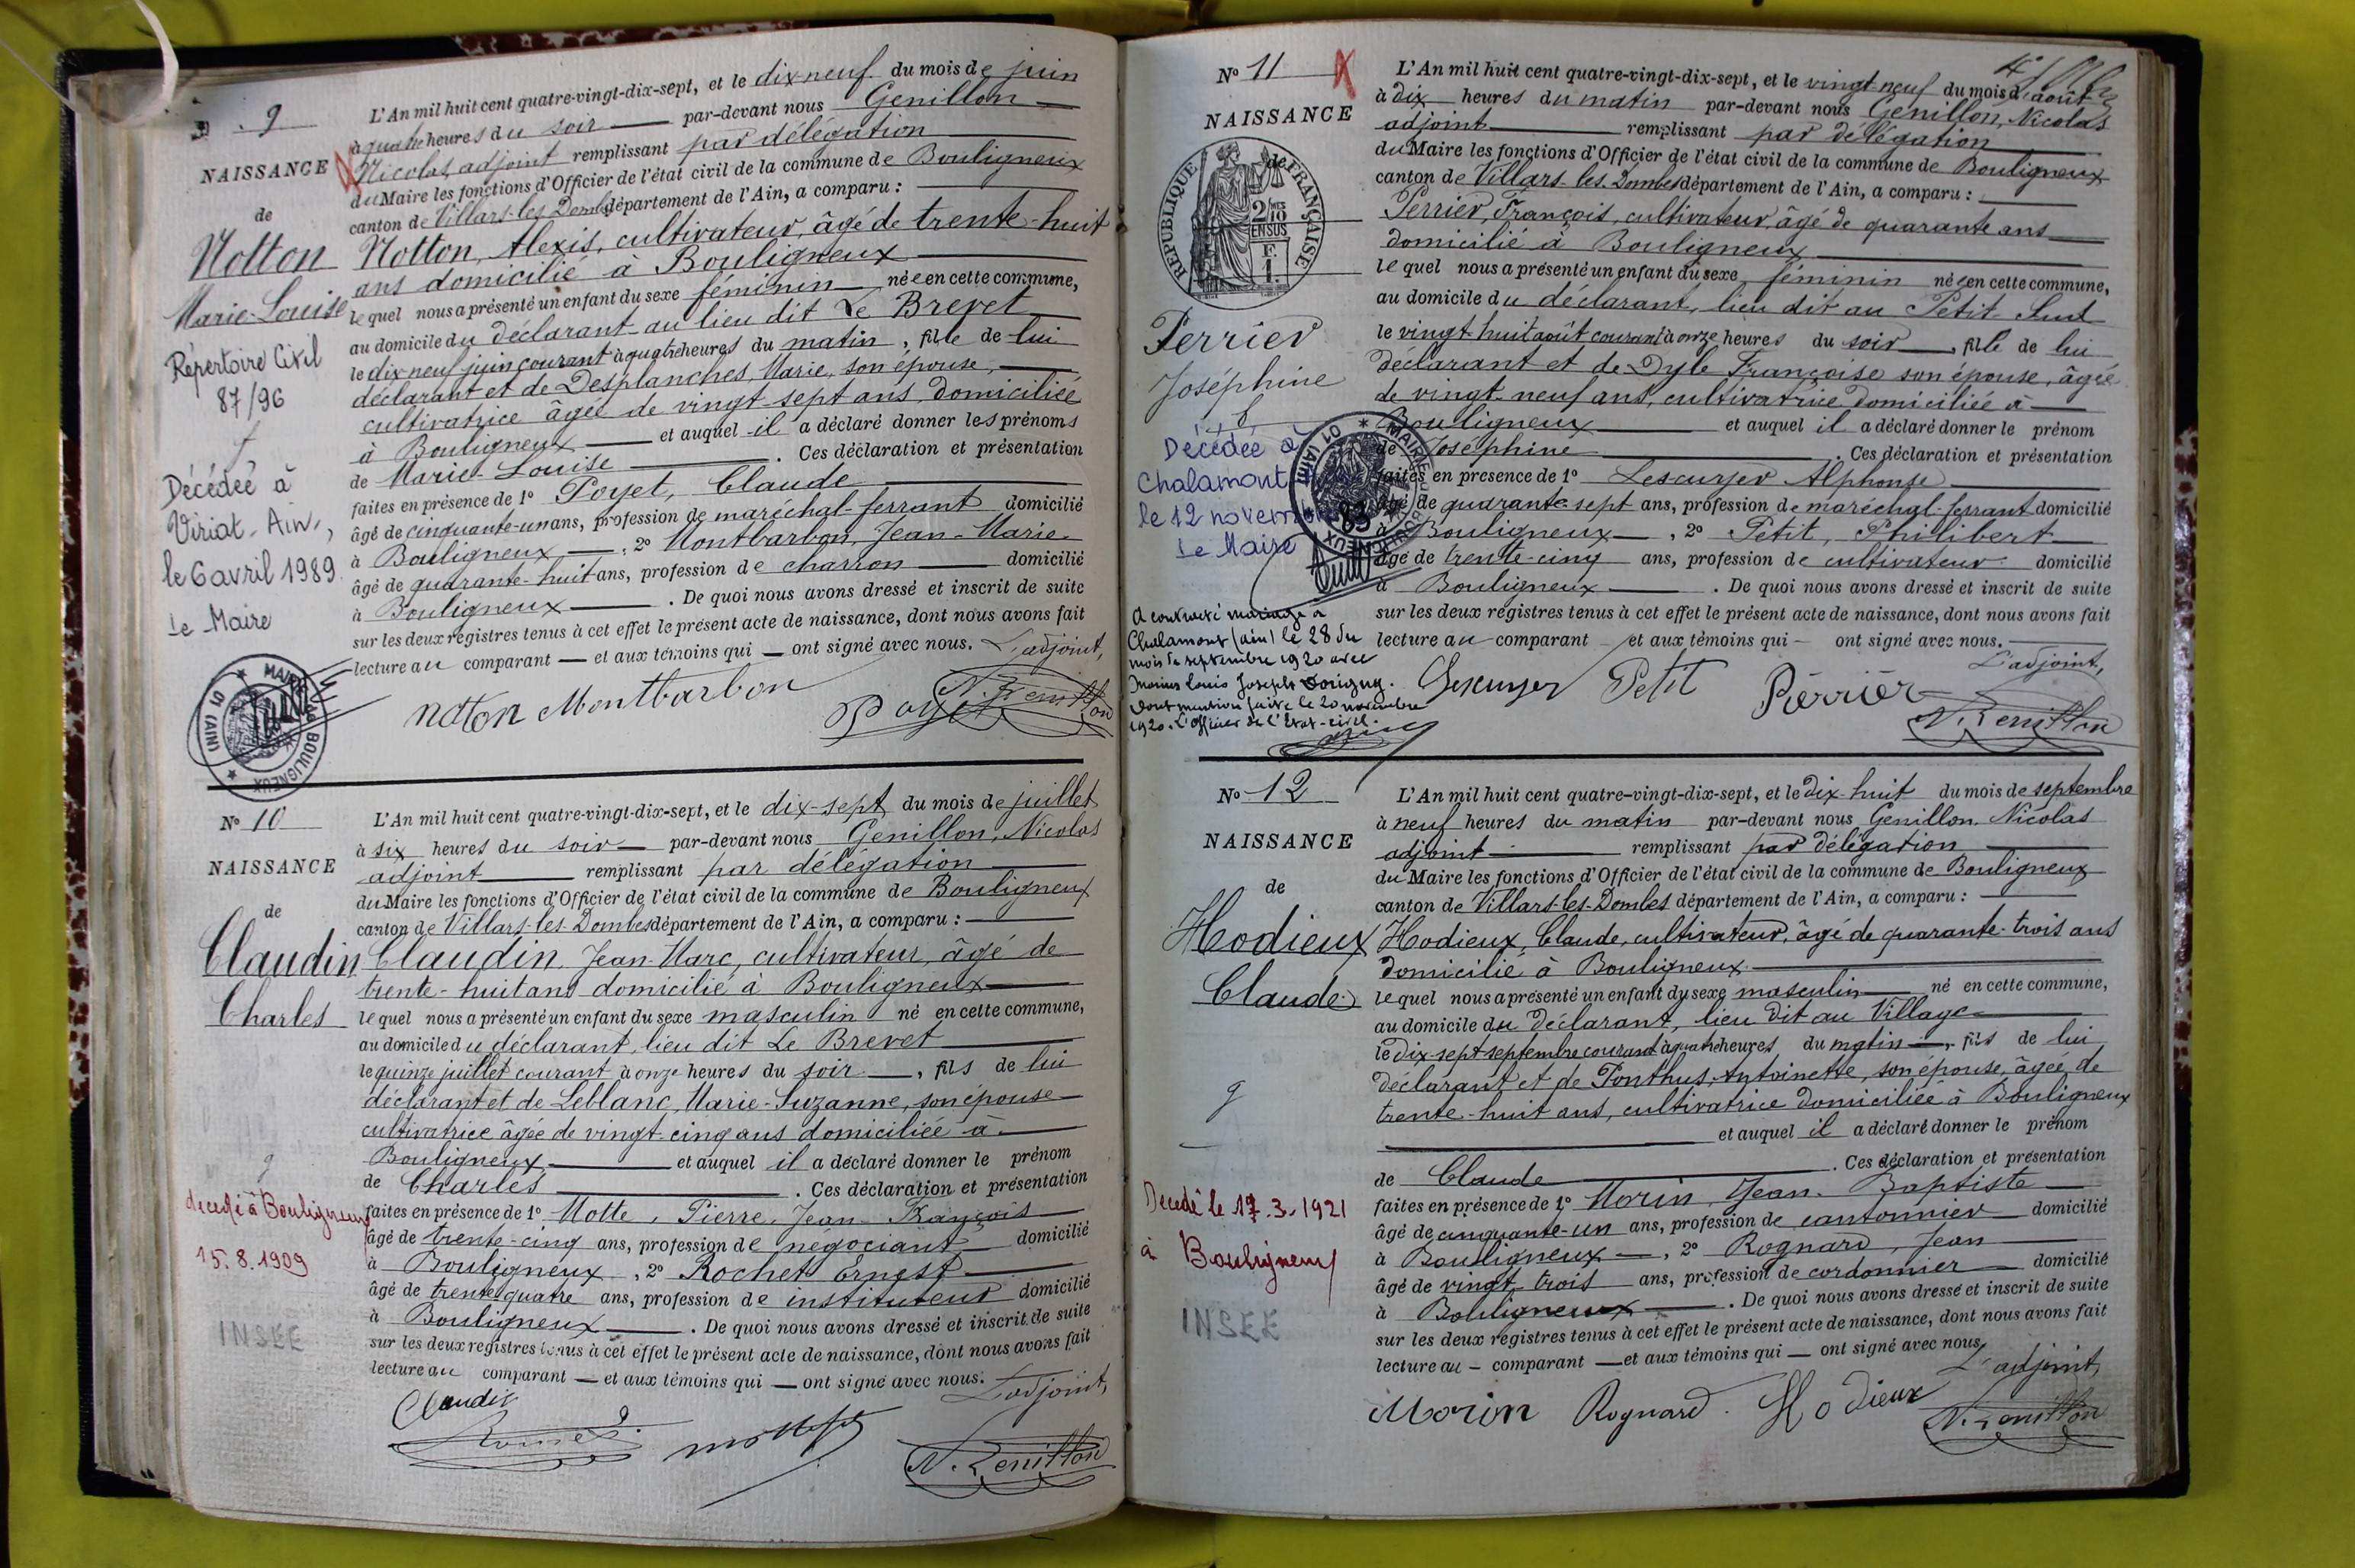 9
NAISSANCE
de
Notton
Marie-Louise
Répertoire Civil
87/96
Décédée à
Viriat-Ain-,
le 6 avril 1989
Le Maire
MAIRIE DE BOULIGNEUX
01 (AIN)
L'An mil huit cent quatre-vingt-dix-sept, et le dix-neuf du mois de juin
à quatre heures du soir par-devant nous Genillon
Nicolas, adjoint remplissant par délégation
du Maire les fonctions d'Officier de l'état civil de la commune de Bouligneux
canton de Villars-les-Dombes département de l'Ain, a comparu :
Notton, Alexis, cultivateur, âgé de trente-huit
ans domicilié à Bouligneux
lequel nous a présenté un enfant du sexe féminin née en cette commune,
au domicile du déclarant au lieu dit Le Brevet
le dix neuf juin courant à quatre heures du matin, fille de lui
déclarant et de Desplanches, Marie, son épouse,
cultivatrice âgée de vingt-sept ans, domiciliée
à Bouligneux et auquel il a déclaré donner les prénoms
de Marie-Louise . Ces déclaration et présentation
faites en présence de 1° Poyet, Claude
âgé de cinquante-un ans, profession de maréchal-ferrant domicilié
à Bouligneux, 2° Montbarbon, Jean-Marie
âgé de quarante-huit ans, profession de charron domicilié
à Bouligneux . De quoi nous avons dressé et inscrit de suite
sur les deux registres tenus à cet effet le présent acte de naissance, dont nous avons fait
lecture au comparant et aux témoins qui ont signé avec nous. L'adjoint,
noton Montbarbon Poyet N. Genillon
N° 10
NAISSANCE
de
Claudin
Charles
decede à Bouligneux
15.8.1909
INSEE
L'An mil huit cent quatre-vingt-dix-sept, et le dix-sept du mois de juillet
à six heures du soir par-devant nous Genillon, Nicolas
adjoint remplissant par délégation
du Maire les fonctions d'Officier de l'état civil de la commune de Bouligneux
canton de Villars-les-Dombes département de l'Ain, a comparu :
Claudin, Jean-Marc, cultivateur, âgé de
trente-huit ans domicilié à Bouligneux
lequel nous a présenté un enfant du sexe masculin né en cette commune,
au domicile du déclarant, lieu dit Le Brevet
le quinze juillet courant à onze heures du soir, fils de lui
déclarant et de Leblanc, Marie-Suzanne, son épouse
cultivatrice âgée de vingt-cinq ans domiciliée à
Bouligneux et auquel il a déclaré donner le prénom
de Charles . Ces déclaration et présentation
faites en présence de 1° Motte, Pierre, Jean-François
âgé de trente-cinq ans, profession de negociant domicilié
à Bouligneux, 2° Rochet Ernest
âgé de trente-quatre ans, profession de instituteur domicilié
à Bouligneux . De quoi nous avons dressé et inscrit de suite
sur les deux registres tenus à cet effet le présent acte de naissance, dont nous avons fait
lecture au comparant et aux témoins qui ont signé avec nous. L'adjoint,
Claudin
N. Genillon
N° 11
NAISSANCE
RÉPUBLIQUE FRANÇAISE
2/10
EN SUS
Perrier
Joséphine
Décédée à
Chalamont
le 12 novembre 83
Le Maire
MAIRIE DE BOULIGNEUX
01 (AIN)
A contracté mariage à
Chalamont (ain) le 28 du
mois de septembre 1920 avec
Marius Louis Joseph
Dont mention faite le 20 novembre
1920. L'officier de l'Etat-civil.
L'An mil huit cent quatre-vingt-dix-sept, et le vingt-neuf du mois d'août
à dix heures du matin par-devant nous Genillon, Nicolas
adjoint remplissant par délégation
du Maire les fonctions d'Officier de l'état civil de la commune de Bouligneux
canton de Villars-les-Dombes département de l'Ain, a comparu :
Perrier, François, cultivateur, âgé de quarante ans
domicilié à Bouligneux
lequel nous a présenté un enfant du sexe féminin née en cette commune,
au domicile du déclarant, lieu dit au Petit
le vingt-huit août courant à onze heures du soir, fille de lui
déclarant et de Dyle Françoise son épouse, âgée
de vingt-neuf ans, cultivatrice domiciliée à
Bouligneux et auquel il a déclaré donner le prénom
de Joséphine . Ces déclaration et présentation
faites en présence de 1° Lescuyer Alphonse
âgé de quarante-sept ans, profession de maréchal-ferrant domicilié
à Bouligneux, 2° Petit, Philibert
âgé de trente-cinq ans, profession de cultivateur domicilié
à Bouligneux . De quoi nous avons dressé et inscrit de suite
sur les deux registres tenus à cet effet le présent acte de naissance, dont nous avons fait
lecture au comparant et aux témoins qui ont signé avec nous.
L'adjoint,
Lescuyer Petit Perrier
N. Genillon
N° 12
NAISSANCE
de
Hodieux
Claude
Decedé le 17.3.1921
à Bouligneux
INSEE
L'An mil huit cent quatre-vingt-dix-sept, et le dix-huit du mois de septembre
à neuf heures du matin par-devant nous Genillon, Nicolas
adjoint remplissant par délégation
du Maire les fonctions d'Officier de l'état civil de la commune de Bouligneux
canton de Villars-les-Dombes département de l'Ain, a comparu :
Hodieux, Claude, cultivateur, âgé de quarante-trois ans
domicilié à Bouligneux
lequel nous a présenté un enfant du sexe masculin né en cette commune,
au domicile du déclarant, lieu dit au Village
le dix-sept septembre courant à quatre heures du matin, fils de lui
déclarant et de Ponthus, Antoinette, son épouse, âgée de
trente-huit ans, cultivatrice domiciliée à Bouligneux
et auquel il a déclaré donner le prénom
de Claude . Ces déclaration et présentation
faites en présence de 1° Morin, Jean-Baptiste
âgé de cinquante-un ans, profession de cantonnier domicilié
à Bouligneux, 2° Rognard, Jean
âgé de vingt-trois ans, profession de cordonnier domicilié
à Bouligneux . De quoi nous avons dressé et inscrit de suite
sur les deux registres tenus à cet effet le présent acte de naissance, dont nous avons fait
lecture au comparant et aux témoins qui ont signé avec nous.
L'adjoint,
Morin Rognard Hodieux N. Genillon